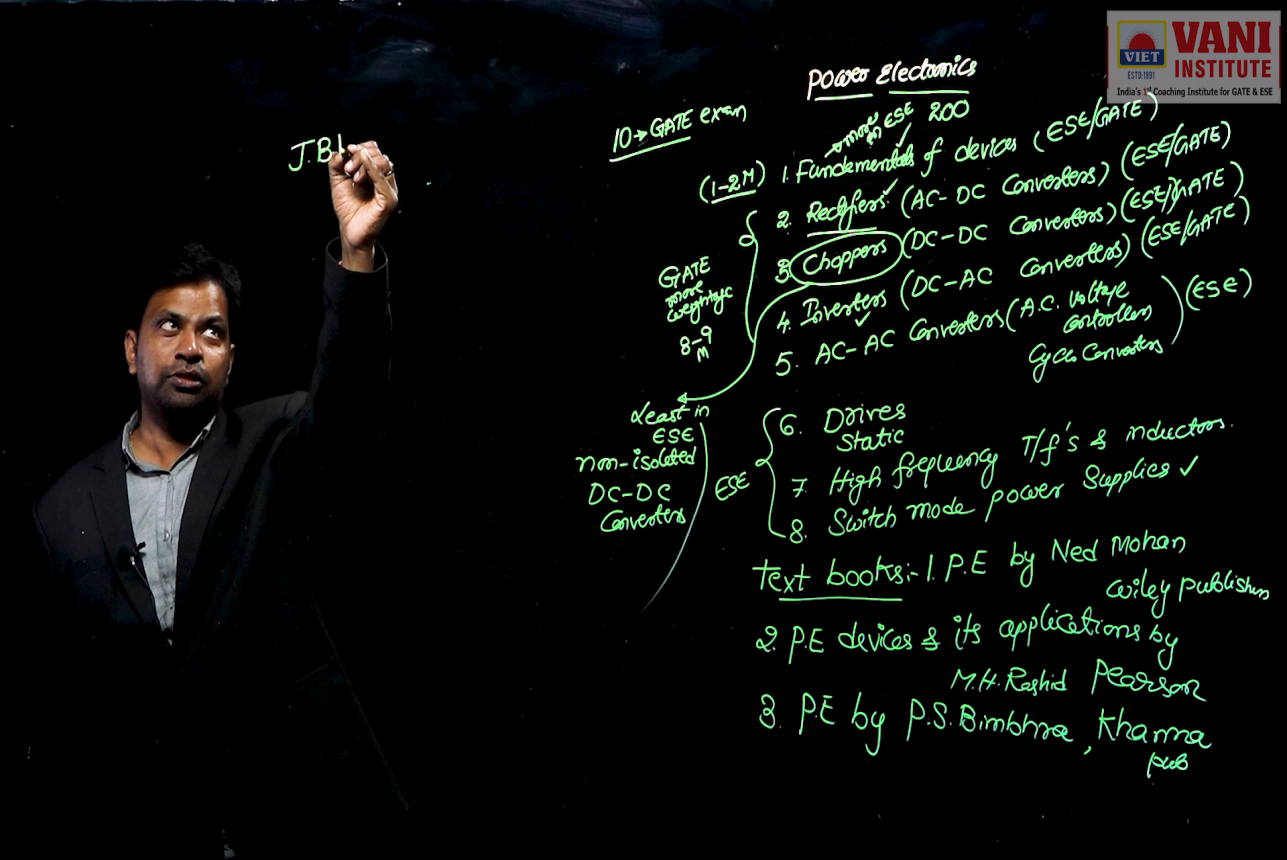 VIET
ESTD:1891
VANI
INSTITUTE
India's 1st Coaching Institute for GATE & ESE
Power Electronics
10→GATE exam
more in ESE 200
(1-2M) 1. Fundementals of devices (ESE/GATE)
2. Rectifiers (AC-DC Converters) (ESE/GATE)
3 Choppers (DC-DC Converters) (ESE/GATE)
4. Inverters (DC-AC Converters) (ESE/GATE)
5. AC-AC Converters (A.C. Voltage
Controllers
Cyclo Converters) (ESE)
GATE
more
weightage
8-9
M
Least in
ESE
non-isolated
DC-DC
Converters
ESE
6. Drives
Static
7. High frequency T/f's & inductors.
8. Switch mode power Supplies ✓
Text books:- 1. P.E by Ned Mohan
Wiley publishers
2. P.E devices & its applications by
M.H. Rashid Pearson
3. P.E by P.S. Bimbhra, Khanna
pub
J.B